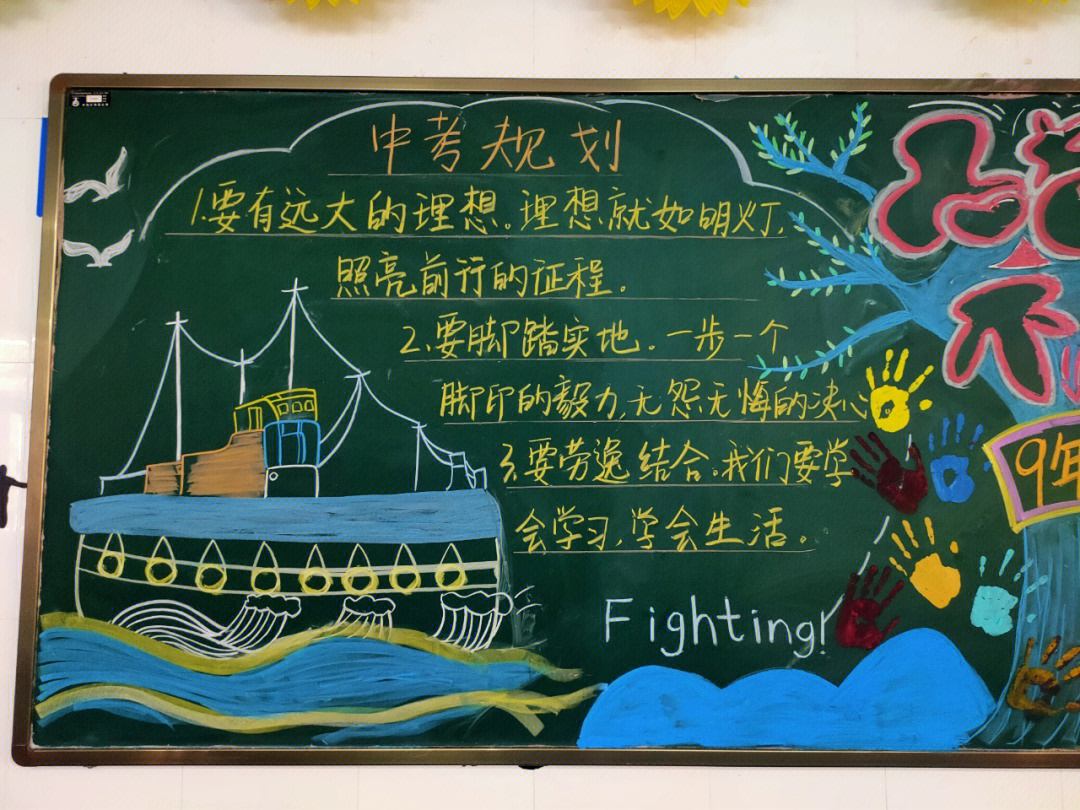 中考规划
1.要有远大的理想。理想就如明灯,
照亮前行的征程。
2.要脚踏实地。一步一个
脚印的毅力,无怨无悔的决心
3.要劳逸结合。我们要学
会学习,学会生活。
Fighting!
不
9年